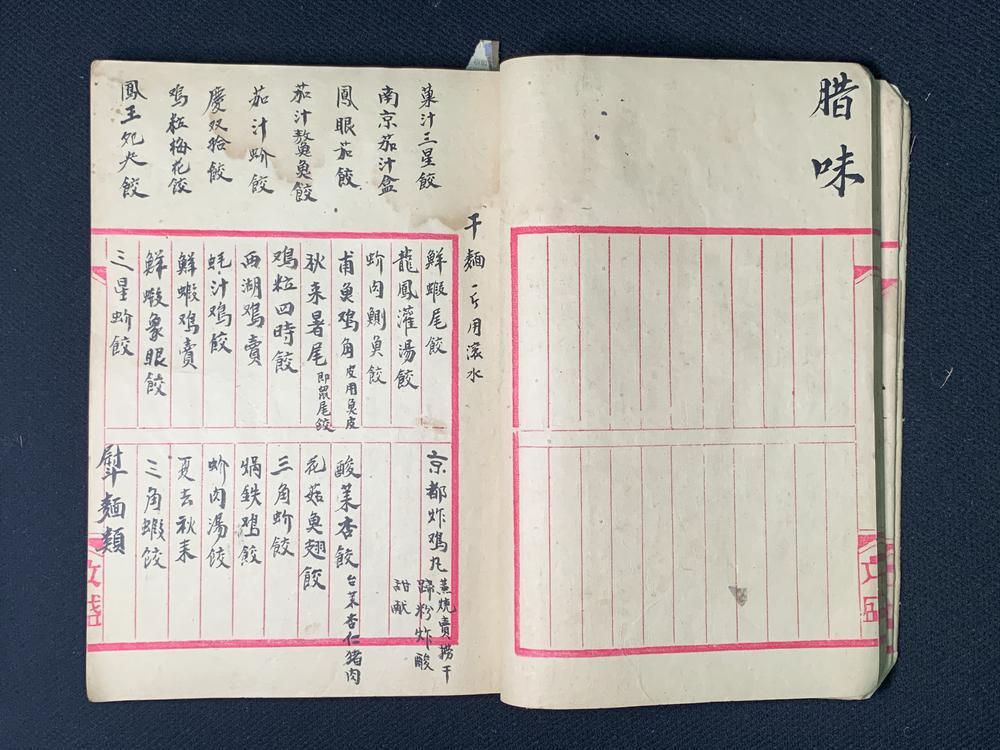 腊味
菓汁三星餃
南京茄汁盒
鳳眼茄餃
茄汁鰲魚餃
茄汁蚧餃
慶双拾餃
鸡粒梅花餃
鳳王夗央餃
干麵一斤用滚水
鮮蝦尾餃
龍鳳灌湯餃
蚧肉鰂魚餃
甫魚鸡角皮用魚皮
秋来暑尾即鼠尾餃
鸡粒四時餃
西湖鸡賣
蚝汁鸡餃
鮮蝦鸡賣
鮮蝦象眼餃
三星蚧餃
京都炸鸡丸
蒸燒賣撈干
蹄粉炸酸
甜献
酸菜杏餃台菜杏仁猪肉
花菇魚翅餃
三角蚧餃
煱鉄鸡餃
蚧肉湯餃
夏去秋来
三角蝦餃
熨麵類
文盛
文盛